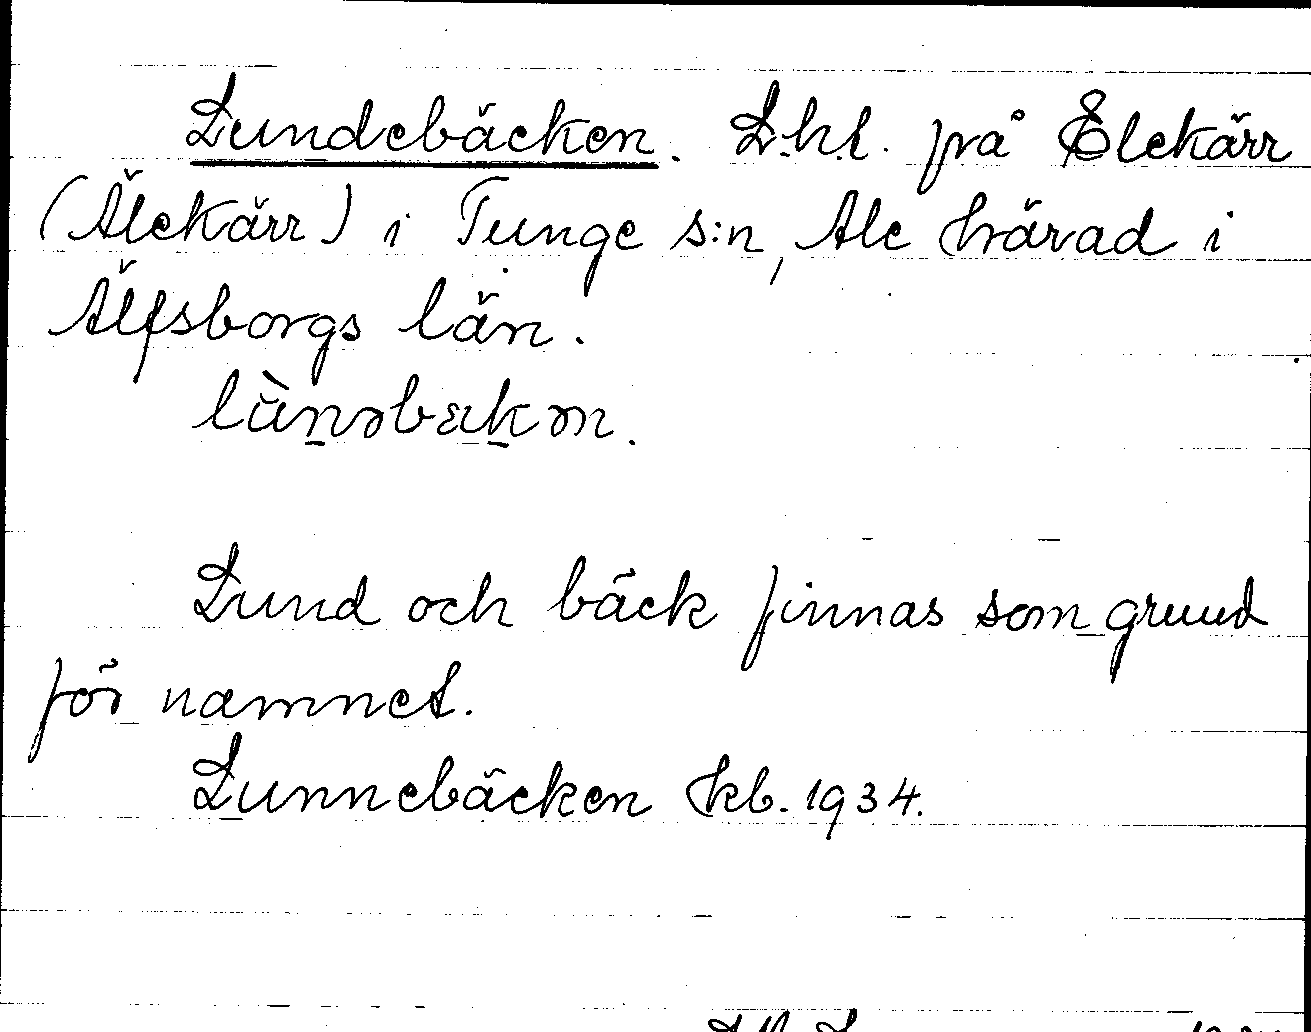 Lundebäcken. L.h.l. på Elekärr
(Älekärr) i Tunge s:n, Ale härad i
Älfsborgs län.
Lund och bäck finnas som grund
för namnet.
Lunnebäcken kb. 1934.